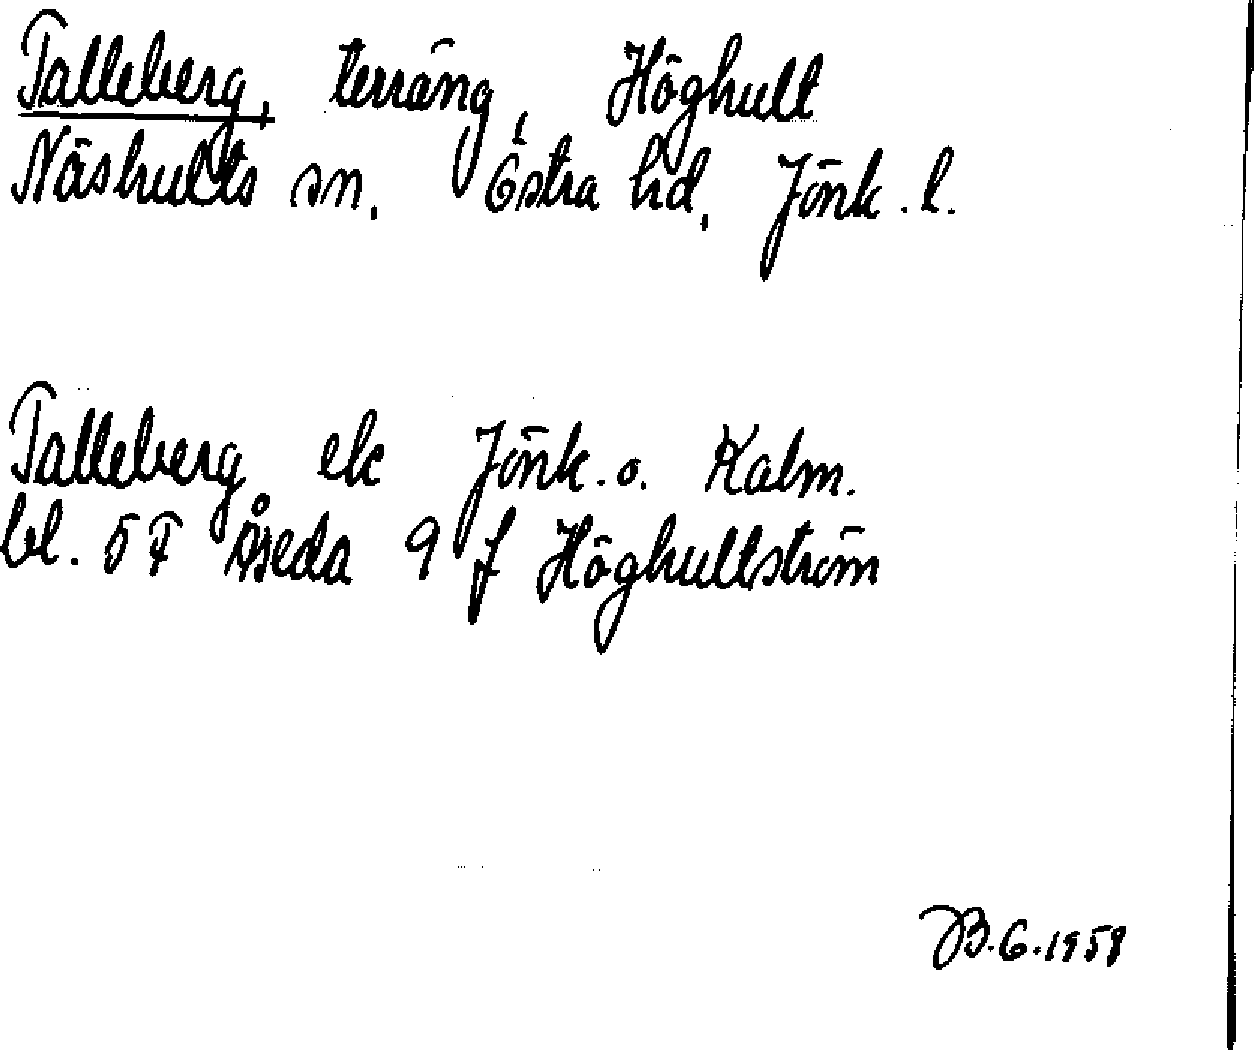 Talleberg, terräng, Höghult
Näshults sn, Östra hd, Jönk. l.
Talleberg ek Jönk. o. Kalm.
bl. 5 F Åseda 9 f Höghultström
JB. G. 1958